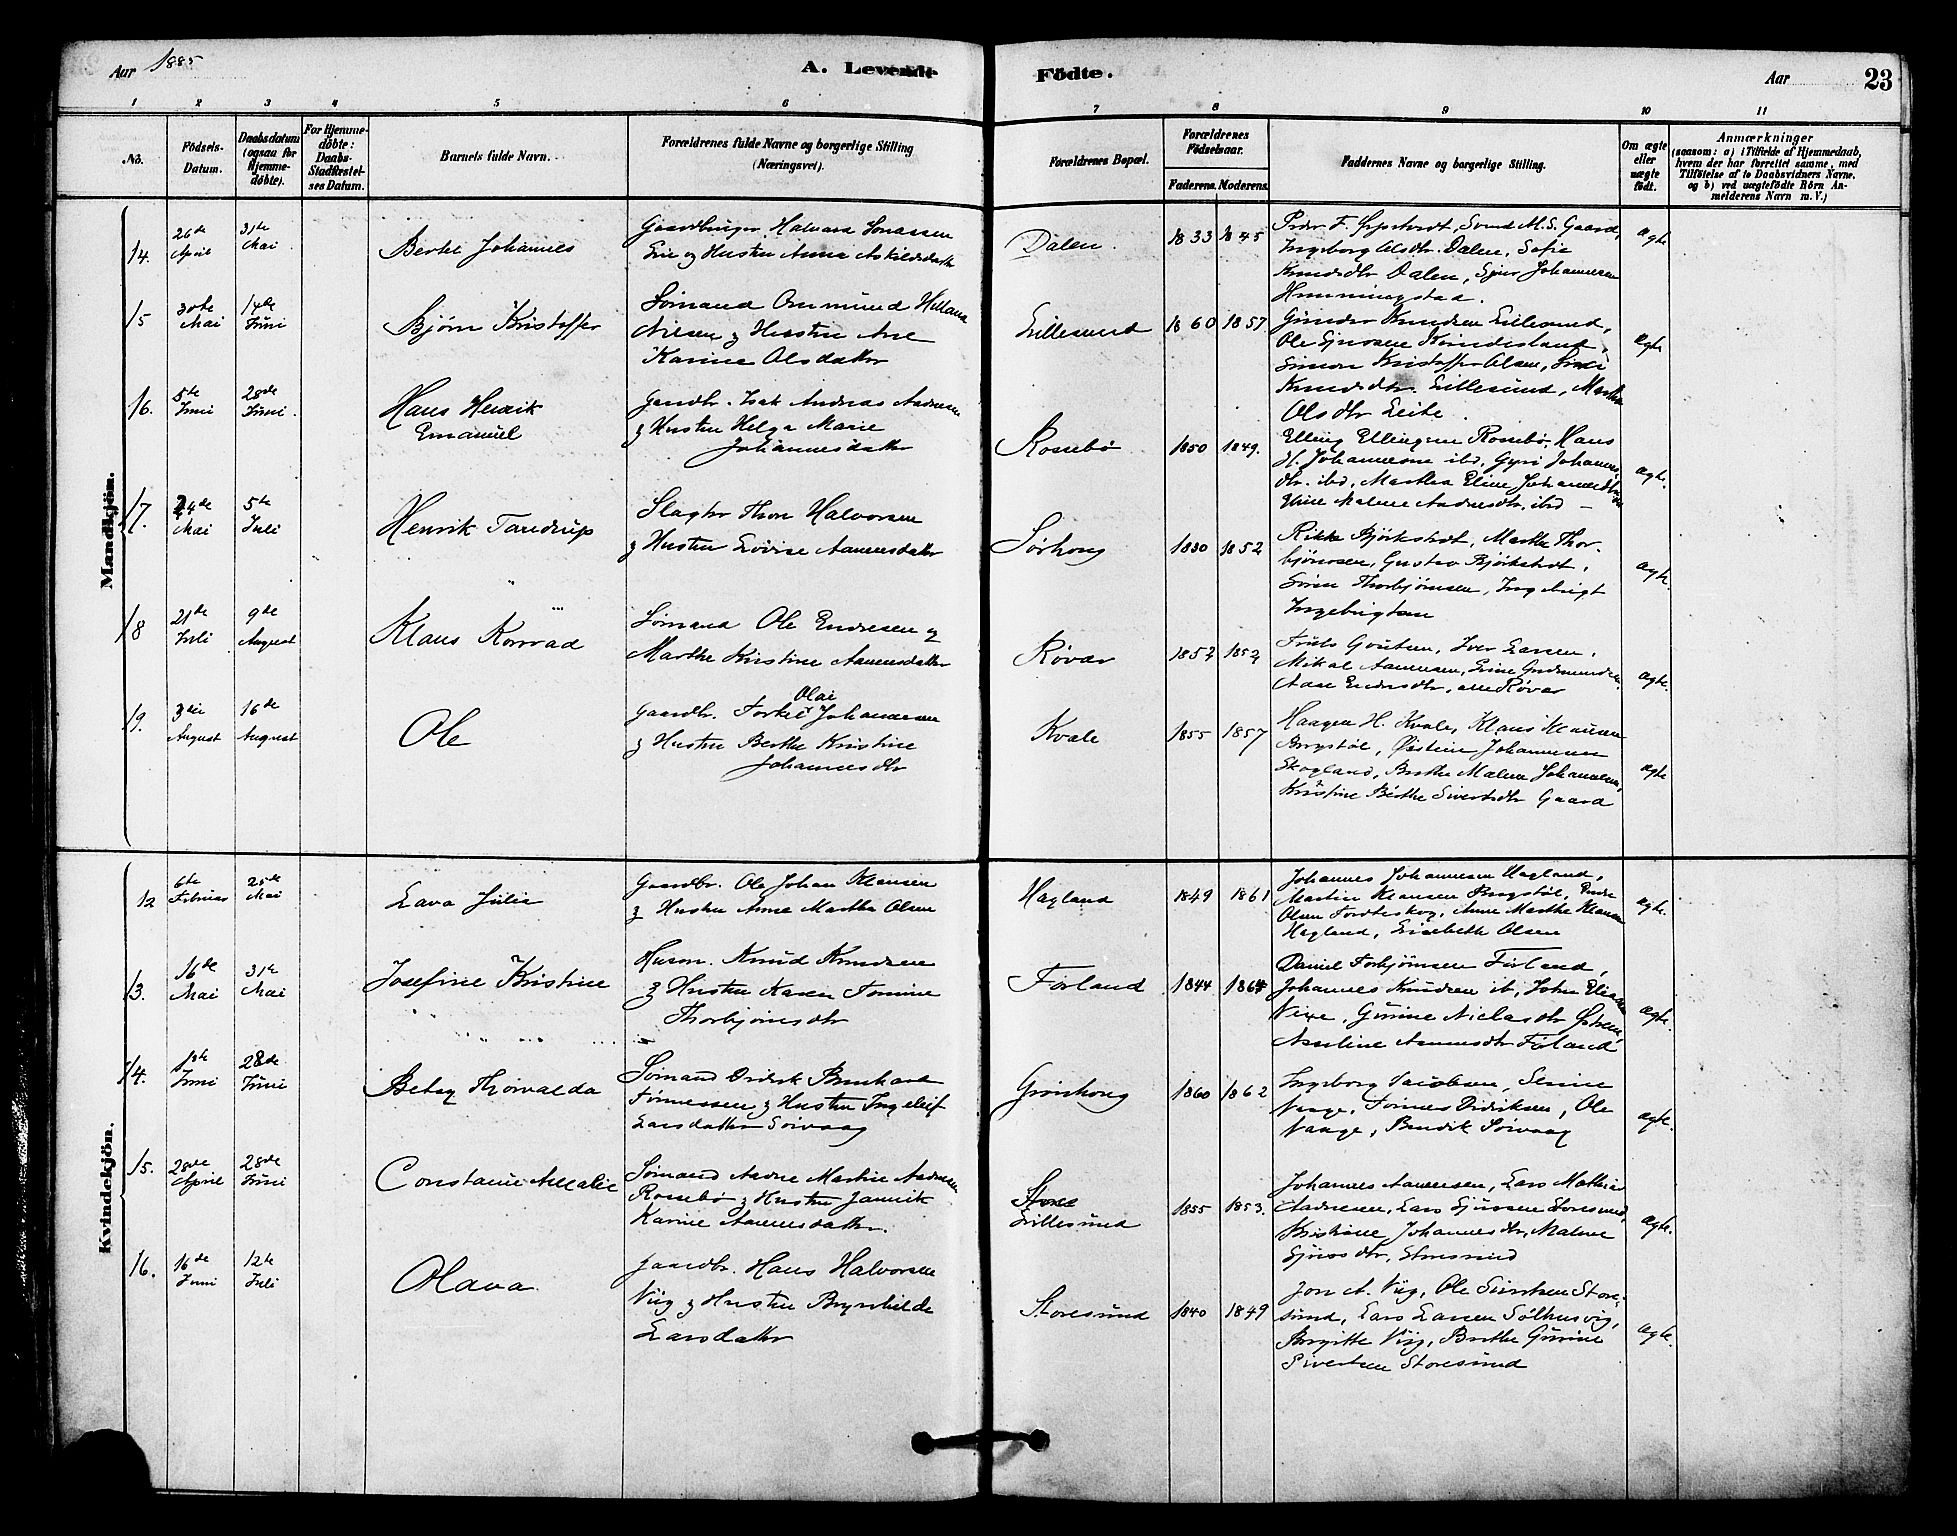 Aar 1885
A. Levende Födte.
Aar
23
1 2 3 4 5 6 7 8 9 10 11
No.
Födsels-Datum.
Daabsdatum (ogsaa for Hjemme-döbte).
For Hjemme-döbte: Daabs-Stadfæstel-ses Datum.
Barnets fulde Navn.
Forældrenes fulde Navne og borgerlige Stilling
(Næringsvei).
Forældrenes Bopæl.
Forældrenes Födselsaar.
Faderens. Moderens.
Faddernes Navne og borgerlige Stilling.
Om ægte eller uægte födt.
Anmærkninger
(saasom: a) i Tilfælde af Hjemmedaab,
hvem der har forrettet samme, med
Tilföielse af to Daabsvidners Navne,
og b) ved uægtefödte Börn An-
melderens Navn m. V.)
Mandkjön.
14. 26de April 31te Mai
Bertel Johannes
Gaardbruger Halvard Jonassen
Lie og Hustru Anna Askildsdatter
Dalen 1833 1845
Svend M. S. Gaard,
Ingeborg Olsdtr. Dalen, Sofie
Knudsdtr Dalen, Sjur Johannesen
Hemmingstad.
ægte
15 30te Mai 14de Juni
Bjørn Kristoffer
Sømand Ommund Helland
Nilsen og Hustru Ane
Karine Olsdatter
Lillesund 1860 1857
Gunder Knudsen Lillesund,
Ole Sjursen
Simon Kristoffer Olsen,
Knudsdtr. Lillesund, Martha
Olsdtr Leite.
ægte
16. 5te Juni 28de Juni.
Hans Henrik
Emanuel
Gaardbr. Isak Andreas Andresen
og Hustru Helga Marie
Johannesdatter
Rossebø 1850 1849.
Elling Ellingsen Rossebø, Hans
H. Johannesen ibd, Gyri Johannes-
dtr. ibd, Martha Eline Johannesdtr
Malene Andresdtr. ibd –
ægte.
17. 24de Mai 5te Juli
Henrik Tandrup
Slagter Thore Halvorsen
og Hustru Lovise Aanensdatter
Sørhoug 1830 1852
Rikke Bjørkstedt, Marthe Thor-
bjørnsen, Gustav Bjørkstedt,
Søren Thorbjørnsen, Ingebrigt
Ingebrigtsen
ægte.
18 21de Juli 9de August
Klaus Konrad
Sømand Ole Endresen og
Marthe Kristine Aanensdatter
Røvær 1852 1852
Iver Larsen,
Mikal Aanensen, Gudmundsen
Aase Endresdtr, alle Røvær
ægte.
19. 3die August 16de August
Ole
Gaardbr. Torkel Olai Johannesen
og Hustru Berthe Kristine
Johannesdtr
Kvale 1855 1857
Haagen H. Kvale, Klaus Klausen
Bergstøl, Østein Johannesen
Skogland, Berthe Malene Johannesen,
Kristine Berthe Sivertsdtr Gaard
ægte
Kvindekjön.
12 6te Februar 25de Mai
Lava Julie
Gaardbr. Ole Johan Klausen
og Hustru Anne Martha Olsen
Hagland 1849 1861
Johannes Johannesen Hagland,
Martin Klausen Bergstøl, Endre
Olsen Tordteskog, Anne Marthe Klausen
Hagland, Lisebeth Olsen
ægte.
13. 16de Mai 31te Mai
Josefine Kristine
Husm. Knud Knudsen
og Hustru Karen Tomine
Thorbjørnsdtr
Førland 1844 1864
Daniel Torbjørnsen Førland,
Johannes Knudsen ib, John
Gurine Nielsdtr
Asseline Aanensdtr Førland
ægte.
14. Juni 28de Juni
Betsy Thorvalda
Sømand Didrik Bernhard
Tønnessen og Hustru Ingeleif
Larsdatter Sørvaag
Grønhoug 1860 1862
Ingeborg Jacobsen, Serine
Vaage, Tønnes Didriksen, Ole
Vaage, Bendik Sørvaag
ægte.
15. 28de April 28de Juni
Constanse Amalie
Sømand Andre Martin Andresen
Rossebø og Hustru Jannik
Karine Aanensdatter.
Store
Lillesund 1855 1853.
Johannes Aanensen, Lars Mathias
Andresen, Lars Sjursen Storesund,
Kristiane Johannesdtr, Malene
Sjursdtr, Storesund
ægte.
16. 16de Juni 12te Juli
Olava
Gaardbr. Hans Halvorsen
Viig og Hustru Brynhilde
Larsdatter
Storesund 1840 1849
Jon A. Viig, Ole Sivertsen Store-
sund, Lars Larsen Sølhusvig,
Birgitte Viig, Berthe Gurine
Sivertsen Storesund
ægte.